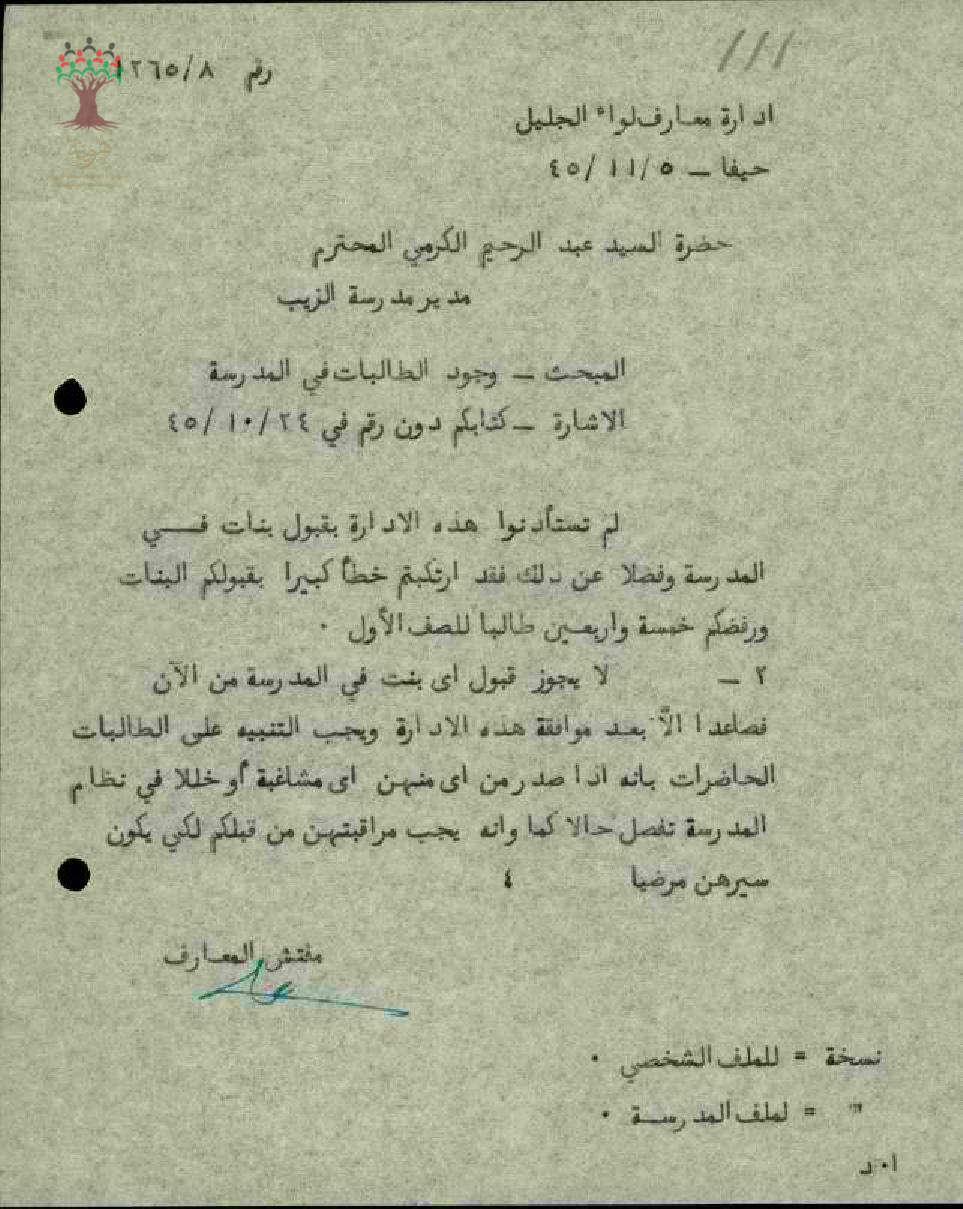 رقم ١٢٦٥/٨
ادارة معارف لواء الجليل
حيفا ــ ٤٥/١١/٥
حضرة السيد عبد الرحيم الكرمي المحترم
مدير مدرسة الزيب
المبحث ــ وجود الطالبات في المدرسة
الاشارة ــ كتابكم دون رقم في ٤٥/١٠/٢٤
لم تستأذنوا هذه الادارة بقبول بنات فـــي
المدرسة وفضلا عن ذلك فقد ارتكبتم خطأ كبيرا بقبولكم البنات
ورفضكم خمسة واربعين طالبا للصف الأول ٠
٢ ــ لا يجوز قبول اى بنت في المدرسة من الآن
فصاعدا الاّ بعد موافقة هذه الادارة ويجب التنبيه على الطالبات
الحاضرات بانه اذا صدر من اى منهن اى مشاغبة أو خللا في نظام
المدرسة تفصل حالا كما وانه يجب مراقبتهن من قبلكم لكي يكون
سيرهن مرضيا ٤
مفتش المعارف
نسخة = للملف الشخصي ٠
" = لملف المدرسـة ٠
ا٠د